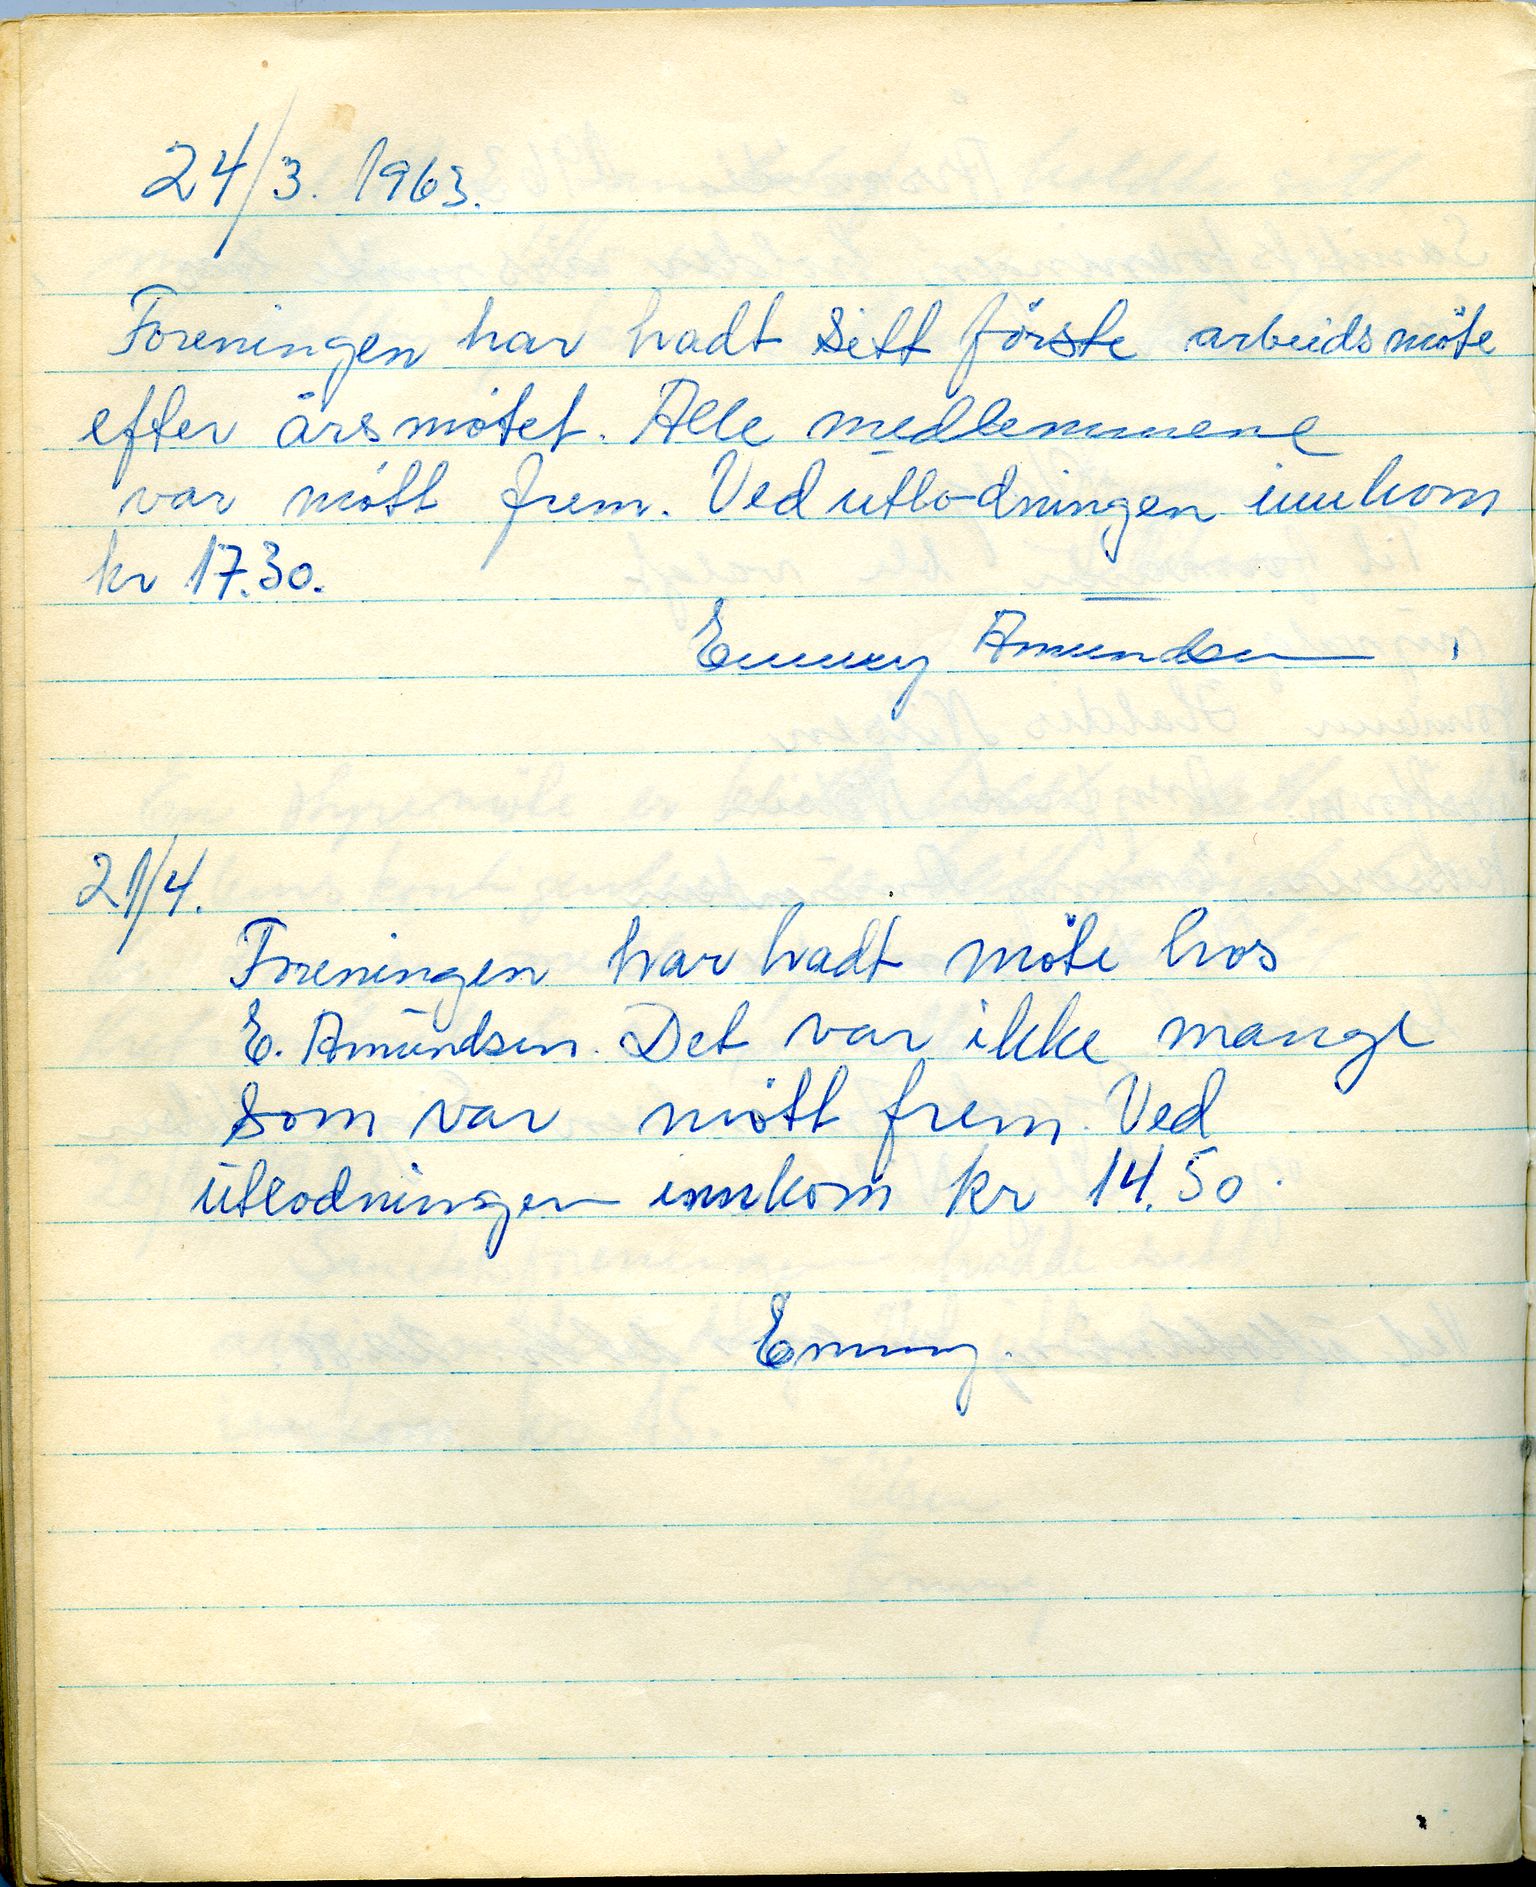 24/3. 1963.
Foreningen har hadt sitt förste arbeidsmöte
efter årsmötet. Alle medlemmene
var mött frem. Ved utlodningen innkom
kr 17.30.
Emmy Amundsen
21/4.
Foreningen har hadt möte hos
E. Amundsen. Det var ikke mange
som var mött frem. Ved
utlodningen innkom kr 14.50.
Emmy.